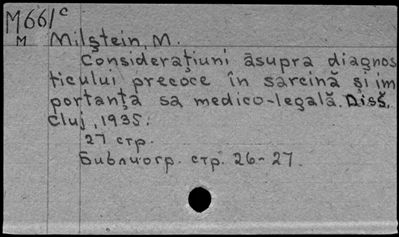 M661c
M Milştein, M.
Consideraţiuni asupra diagnos
ticului precoce în sarcină şi im
portanţa sa medico-legală. Diss.
Cluj, 1935.
27 стр.
Библиогр. стр. 26-27.